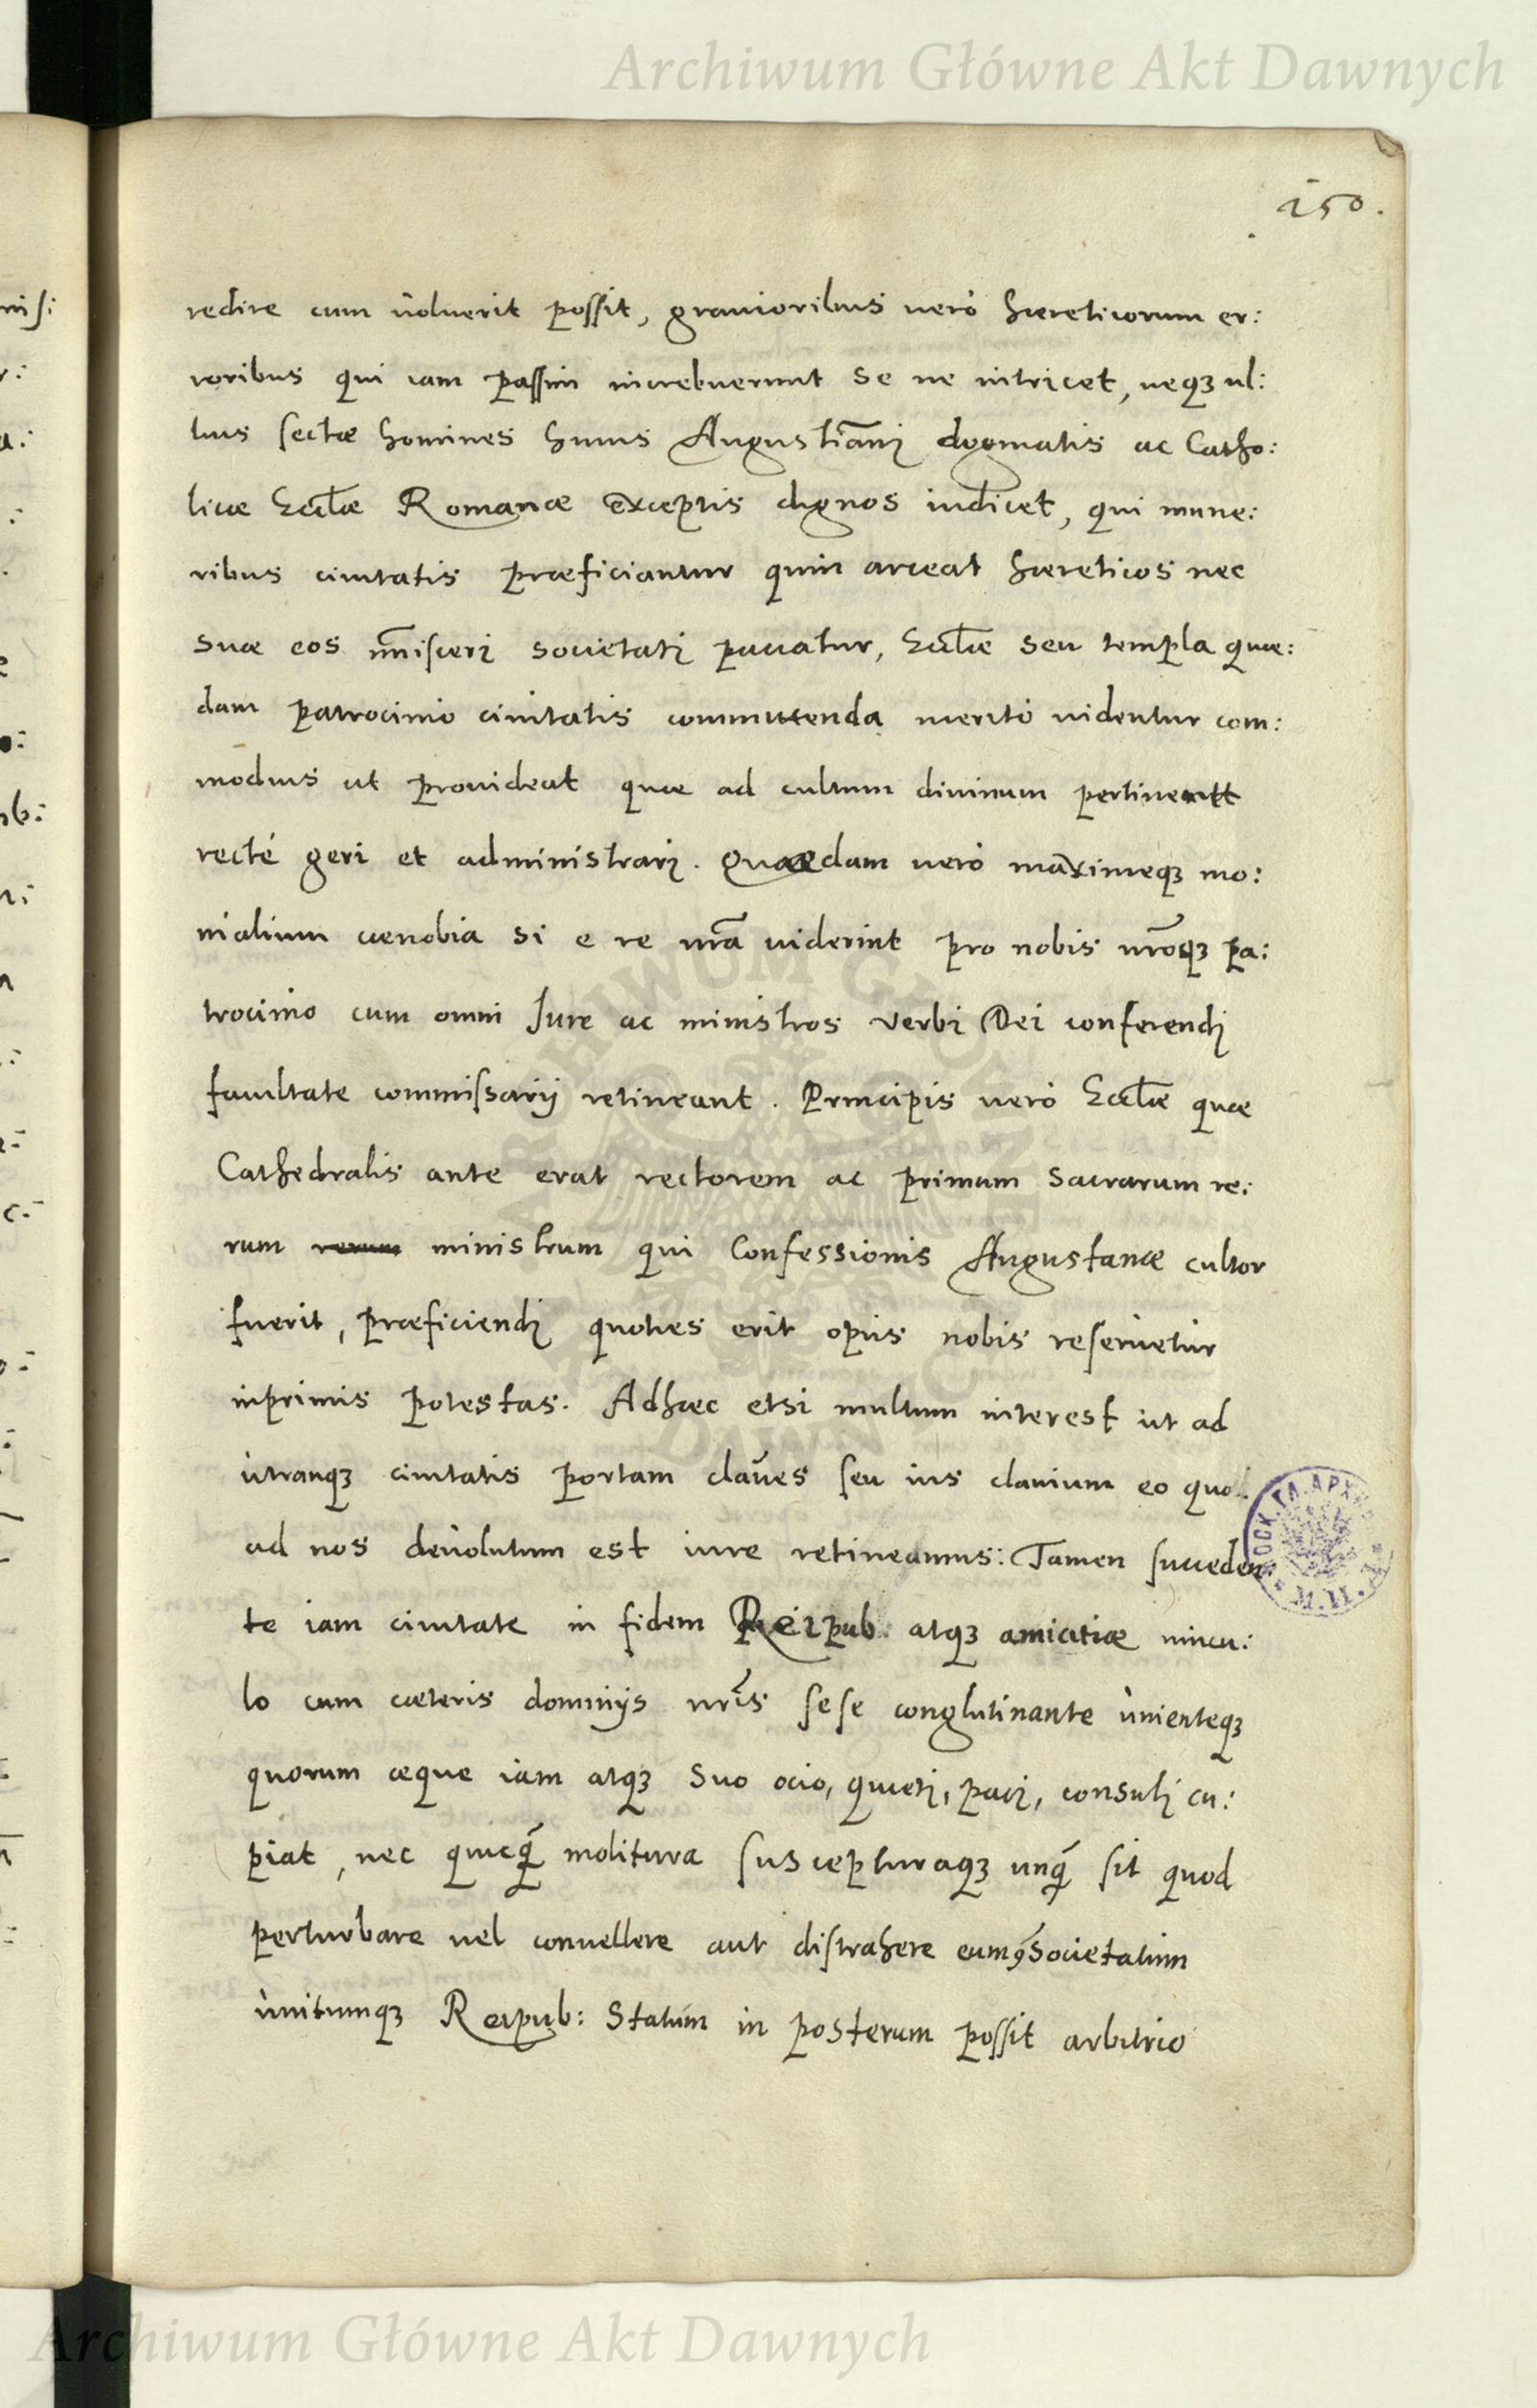 Archiwum Główne Akt Dawnych
150.
redire cum uoluerit possit, grauioribus uero hæreticorum er:
roribus qui iam passim increbuerunt se ne intricet, neqȝ ul:
lius sectæ homines huius Augustiāni dogmatis ac Catho:
licæ Eccl̃æ Romanæ exceptis dignos iudicet, qui mune:
ribus ciuitatis præficiantur quin arceat hæreticos nec
suæ eos im̃isceri societati patiatur, Eccl̃æ seu templa quæ:
dam patrocinio ciuitatis committenda merito uidentur com:
modius ut prouideat quæ ad cultum diuinum pertineant
recté geri et administrari. Quædam uero maximeqȝ mo:
nialium cænobia si e re nr̃a uiderint pro nobis nr̃oqȝ pa:
trocinio cum omni Jure ac ministros verbi Dei conferendi
facultate commissarij retineant. Principis uero Eccl̃æ quæ
Cathedralis ante erat rectorem ac primum sacrarum re:
rum rerum ministrum qui Confessionis Augustanæ cultor
fuerit, præficiendi quoties erit opus nobis reseruetur
inprimis potestas. Adhæc etsi multum interest ut ad
utranqȝ ciuitatis portam claues seu ius clauium eo quo
ad nos deuolutum est iure retineamus: Tamen succeden
te iam ciuitate in fidem Reipub. atqȝ amicitiæ uincu:
lo cum cæteris dominijs nr̃is sese conglutinante unienteqȝ
quorum æque iam atqȝ suo ocio, quieti, paci, consuli cu:
piat, nec quicq̃ molitura suscepturaqȝ unq̃ sit quod
perturbare uel conuellere aut distrahere societatum
unitumqȝ Reipub: Statum in posterum possit arbitrio
Archiwum Główne Akt Dawnych